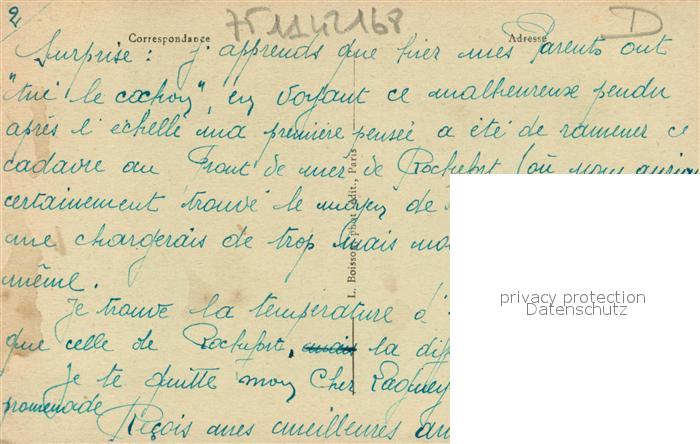 2
75114 2168
D
Correspondance
Adresse
Surprise : j'apprends que hier mes Parents ont
"tué le cochon", en voyant ce malheureux pendu
après l'échelle ma première pensée a été de ramener ce
cadavre au Front de mer de Rochefort (où nous aurions
certainement trouvé le moyen de
me chargerais de trop mais
même.
Je trouve la température
que celle de Rochefort, mais la
Je te quitte mon Cher
promenade
Reçois mes meilleures
L. Boisson, phot. édit., Paris
privacy protection
Datenschutz